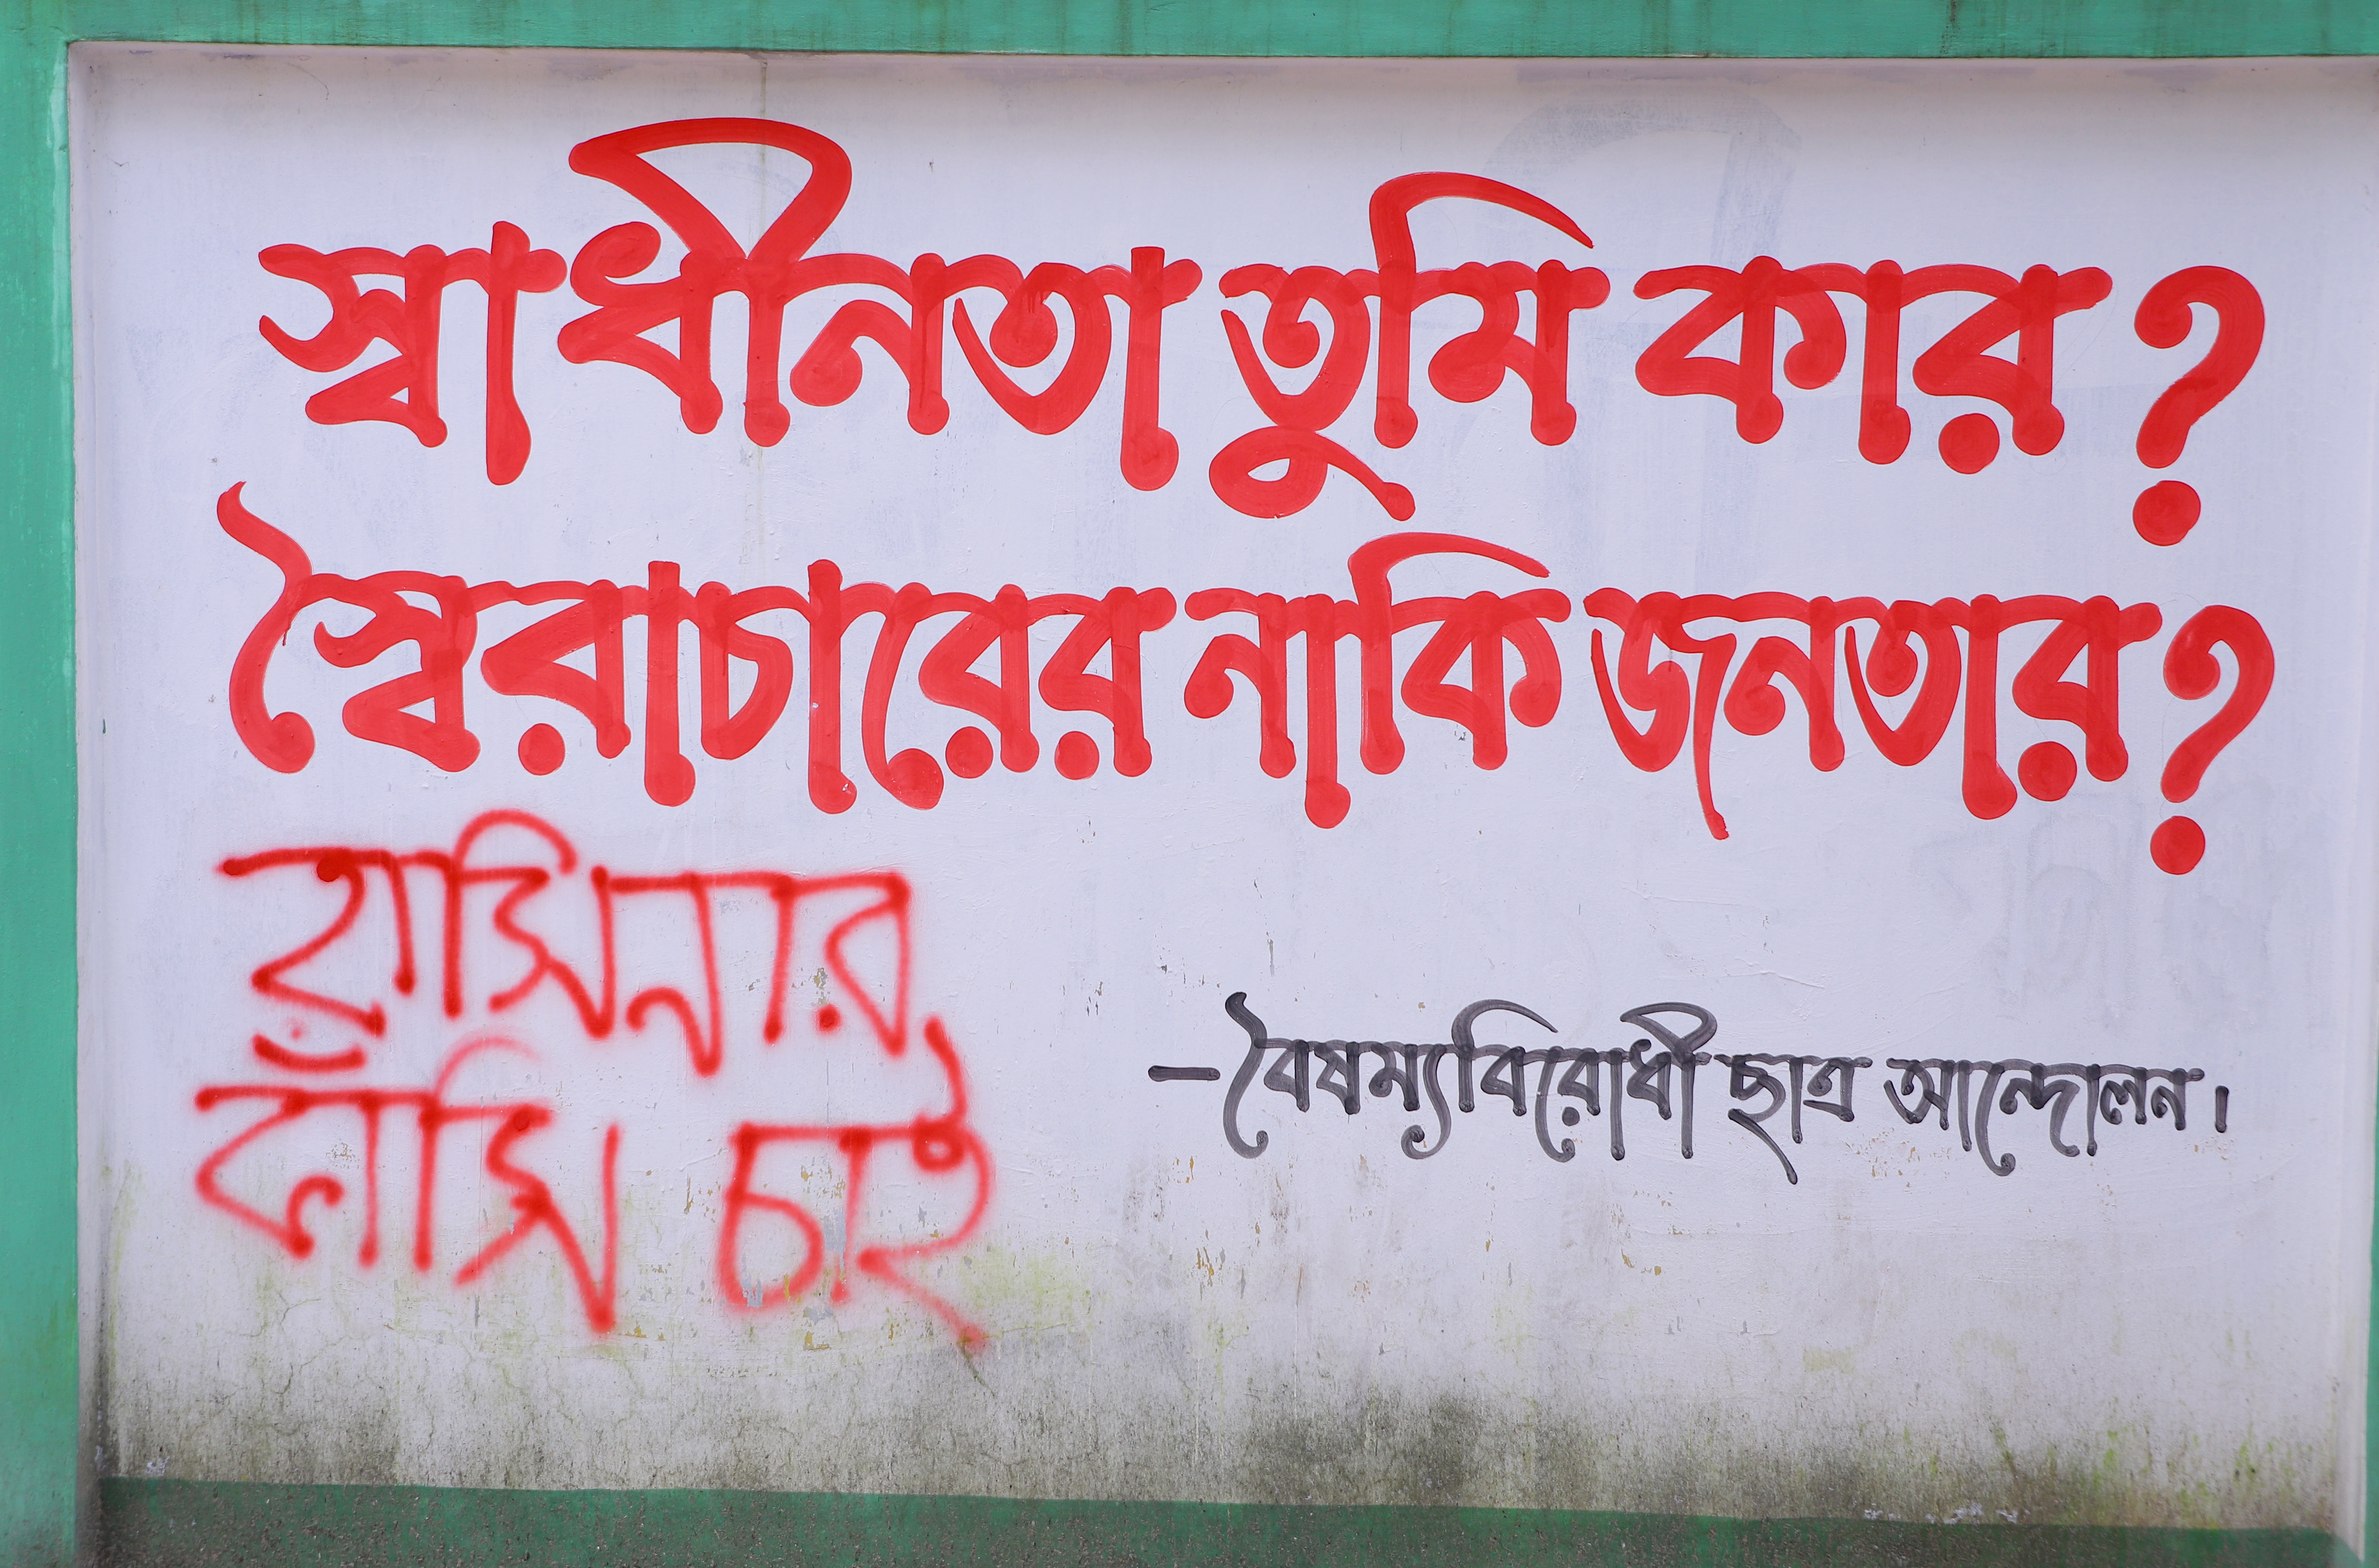 স্বাধীনতা তুমি কার?
স্বৈরাচারের নাকি জনতার?
হাসিনার
ফাঁসি চাই
– বৈষম্যবিরোধী ছাত্র আন্দোলন।